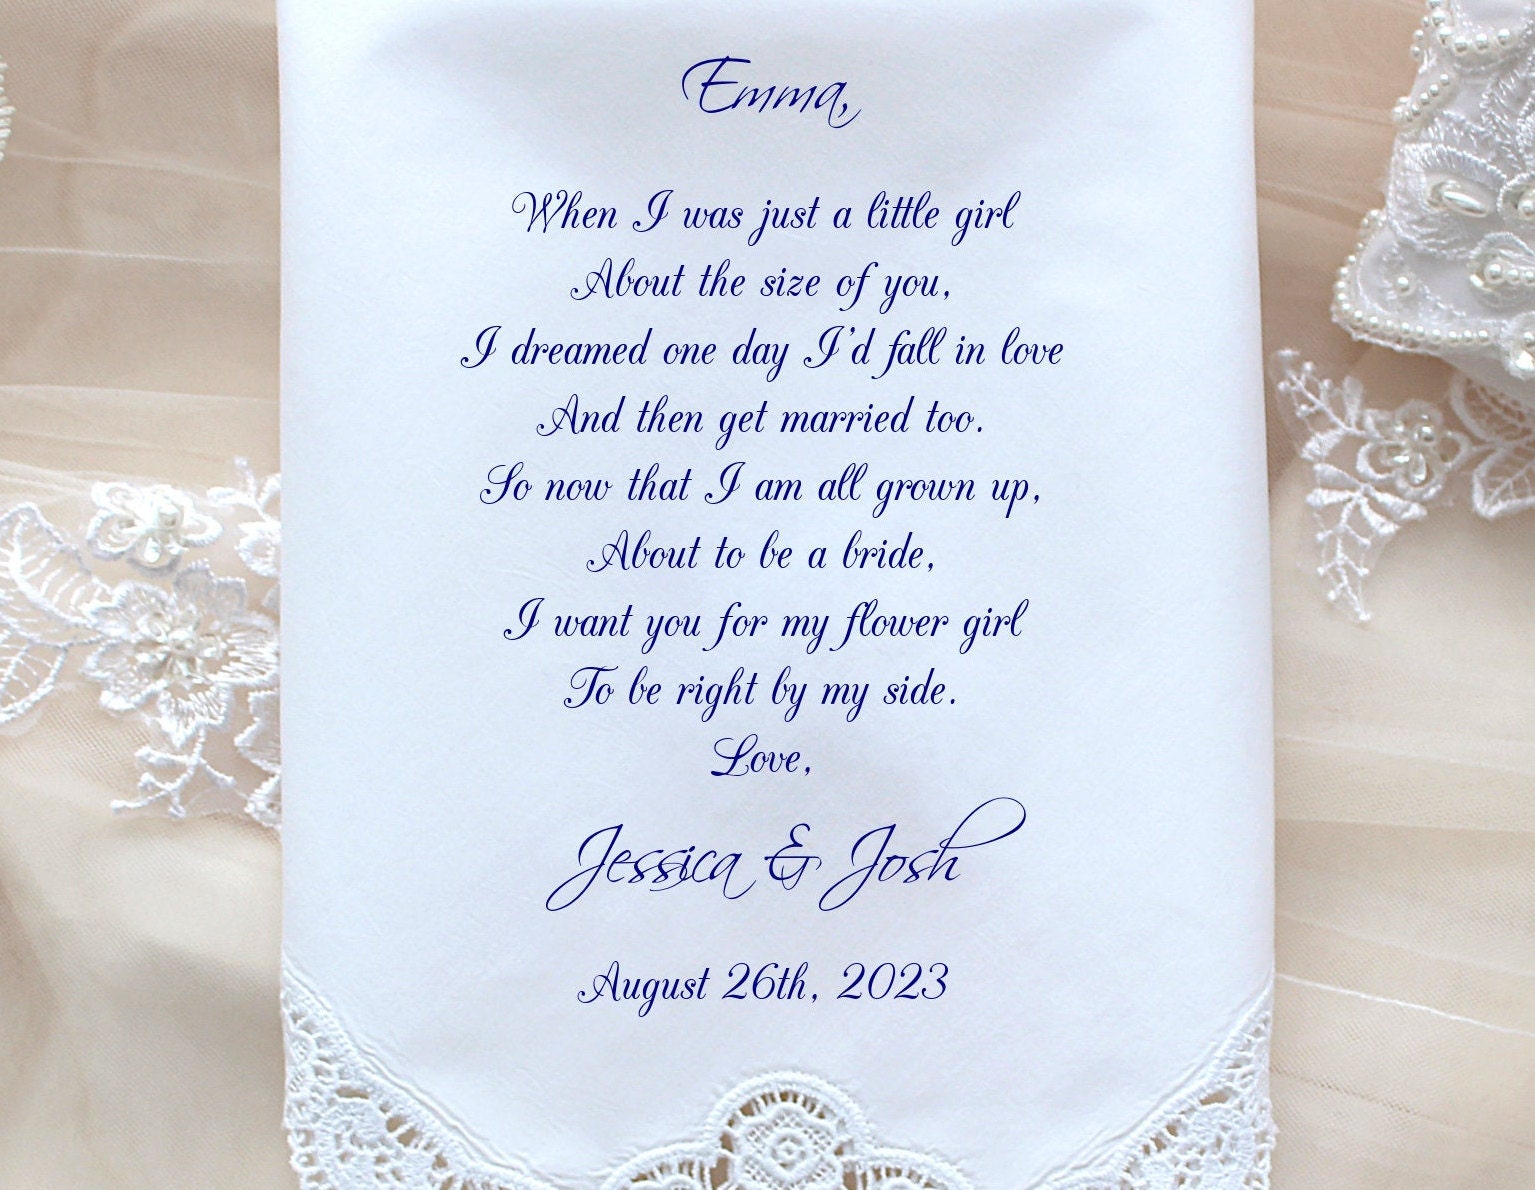 Emma,
When I was just a little girl
About the size of you,
I dreamed one day I'd fall in love
And then get married too.
So now that I am all grown up,
About to be a bride,
I want you for my flower girl
To be right by my side.
Love,
Jessica & Josh
August 26th, 2023